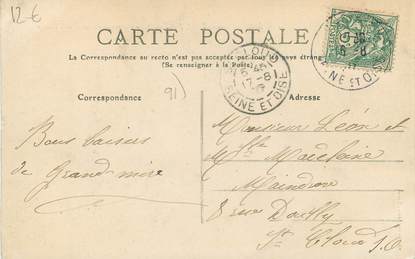 12 €
CARTE POSTALE
La Correspondance au recto n'est pas acceptée par tous les pays étrangers
(Se renseigner à la Poste)
Correspondance
Adresse
91)
SEINE ET OISE
NE ET OISE
Bons baisers
de Grand-mère
Monsieur Léon et
Mlle Madelaine
Maindron
8 rue Dailly
St Cloud S.O.